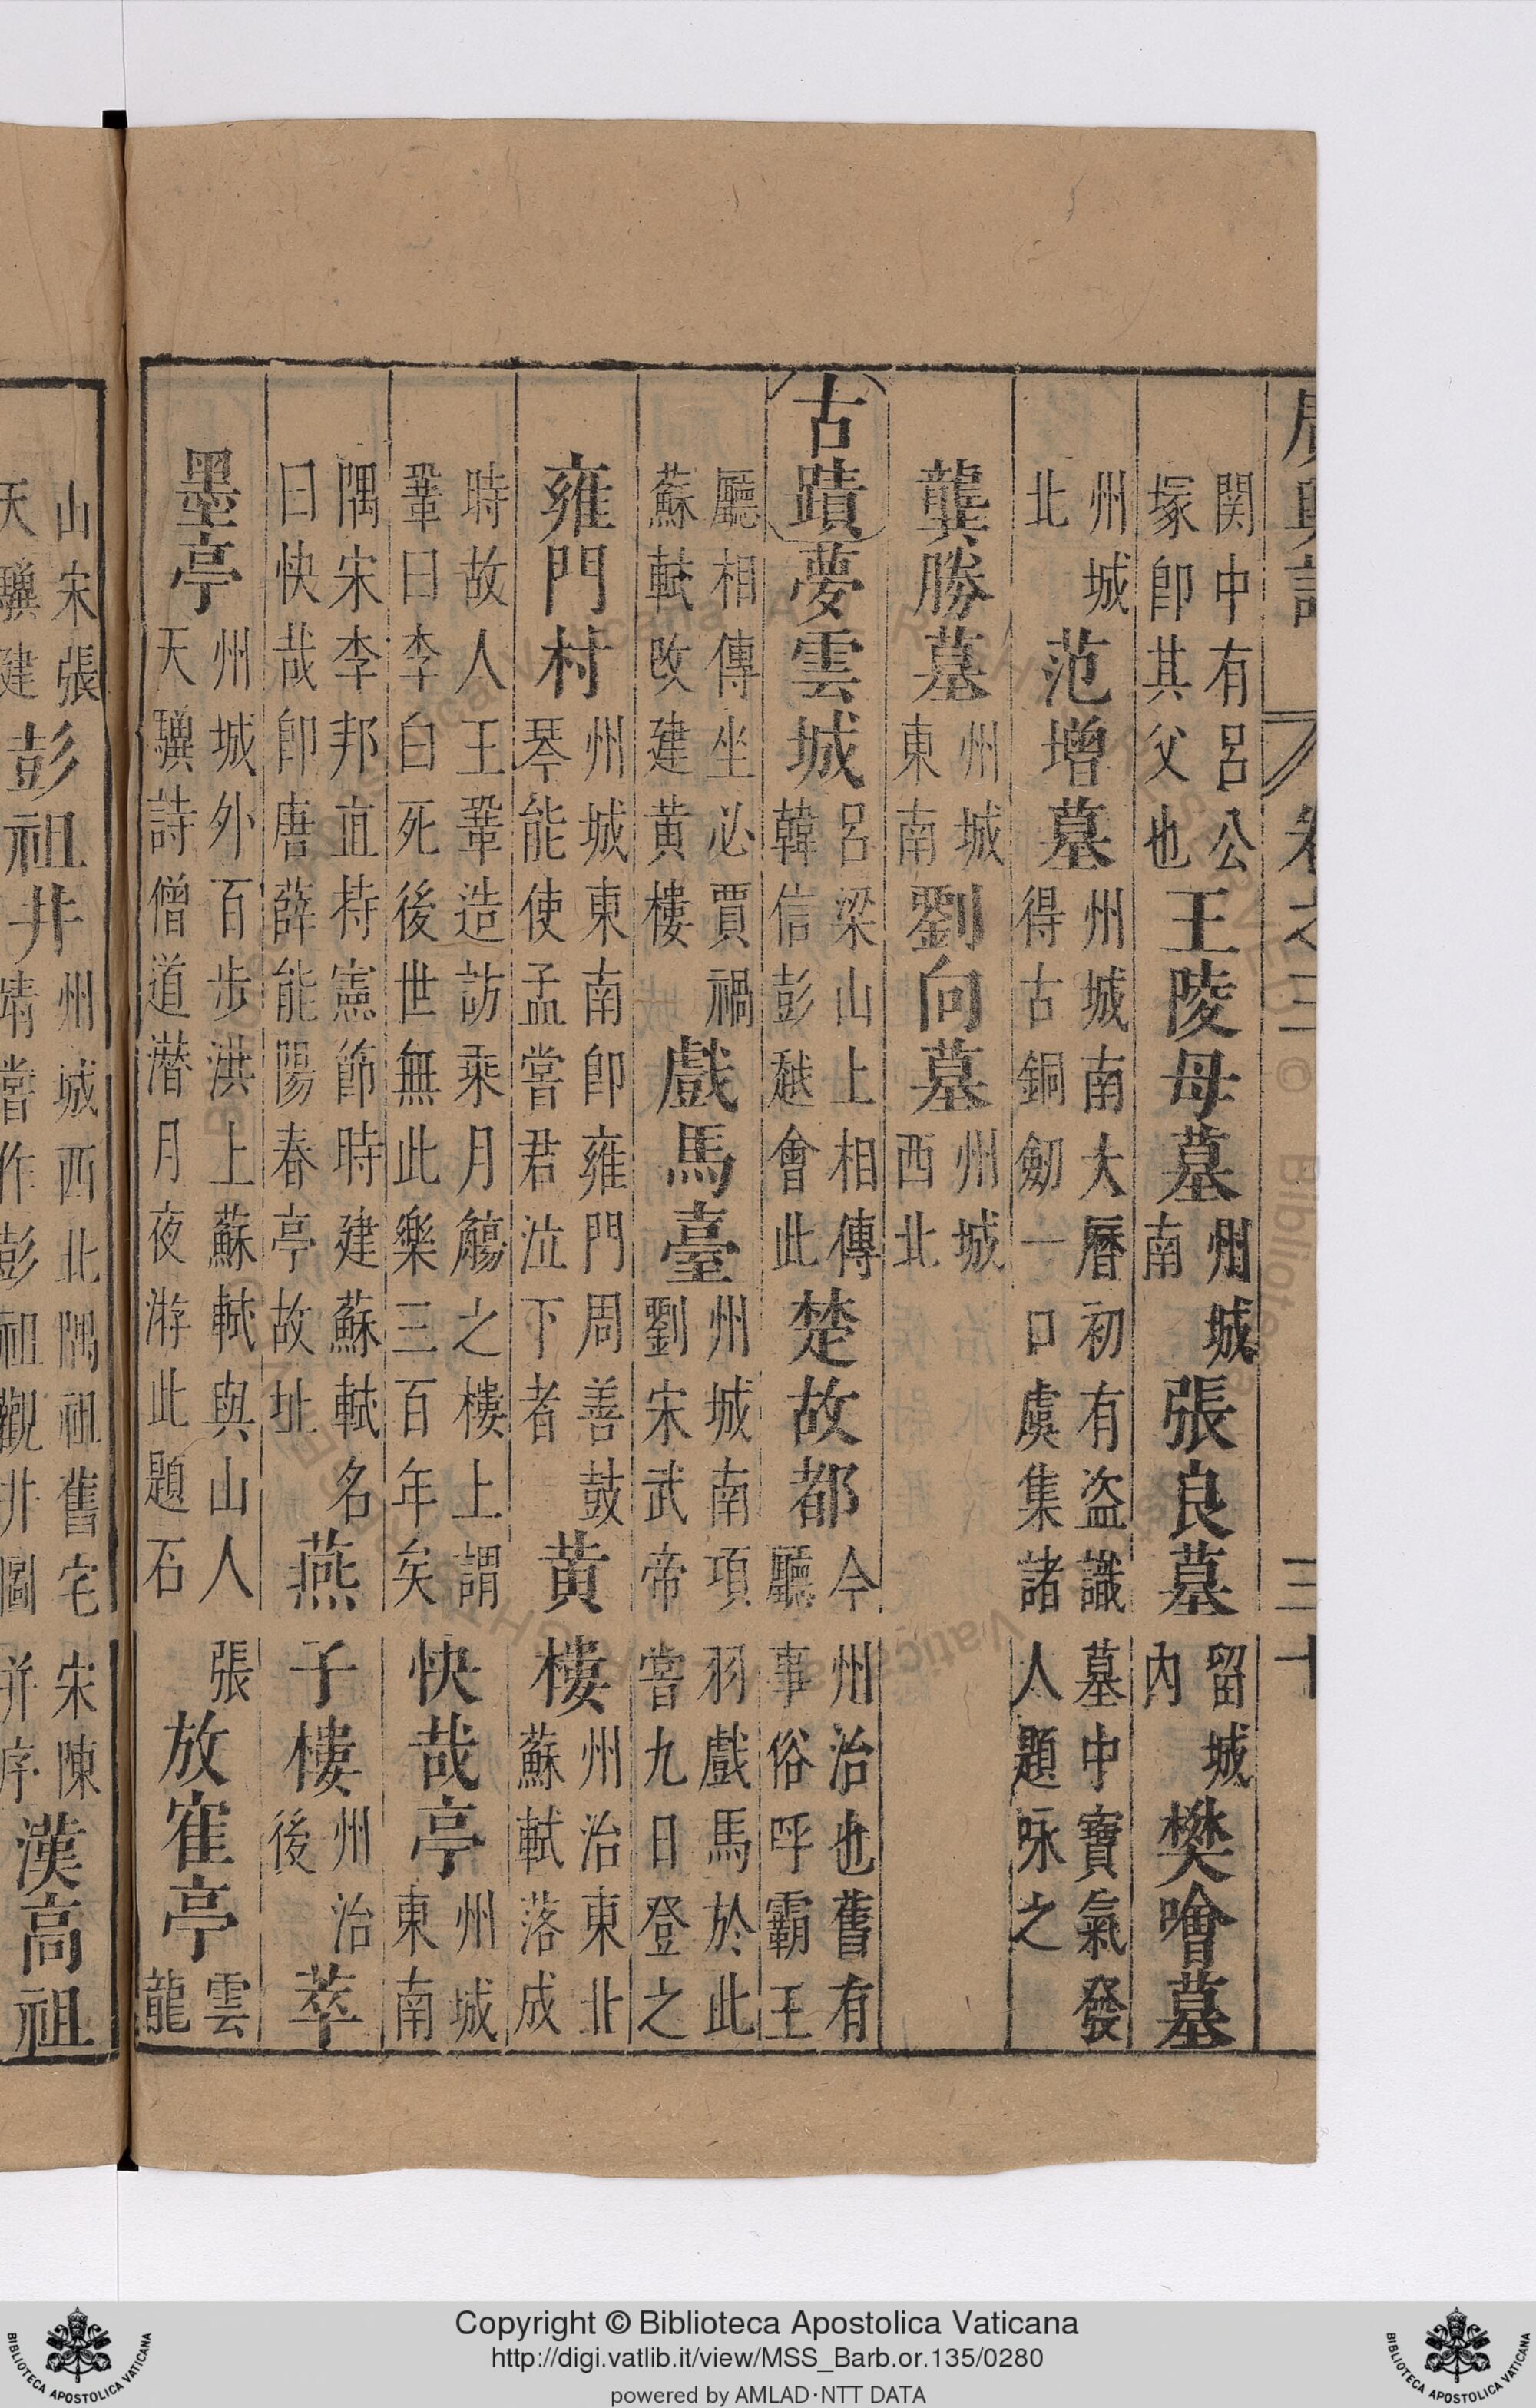 廣輿記 卷之三 三十
関中有呂公塚即其父也王陵母墓州城南張良墓留城內樊噲墓
州城北范增墓州城南大曆初有盗識墓中寶氣發得古銅劒一口虞集諸人題咏之
龔勝墓州城東南劉向墓州城西北
古蹟夢雲城呂梁山上相傳韓信彭越會此楚故都今州治也舊有廳事俗呼霸王
廳相傳坐必賈禍蘇軾改建黄樓戲馬臺州城南項羽戲馬於此劉宋武帝嘗九日登之
雍門村州城東南即雍門周善鼓琴能使孟嘗君泣下者黄樓州治東北蘇軾落成
時故人王鞏造訪乘月觴之樓上謂鞏曰李白死後世無此樂三百年矣快哉亭州城東南
隅宋李邦直持憲節時建蘇軾名曰快哉即唐薛能陽春亭故址燕子樓州治後萃
墨亭州城外百步洪上蘇軾與山人張天驥詩僧道潜月夜游此題石放隺亭雲龍
山宋張天驥建彭祖井州城西北隅祖舊宅宋陳靖嘗作彭祖觀井圖并序漢高祖
Copyright © Biblioteca Apostolica Vaticana
http://digi.vatlib.it/view/MSS_Barb.or.135/0280
powered by AMLAD·NTT DATA
BIBLIOTECA APOSTOLICA VATICANA
BIBLIOTECA APOSTOLICA VATICANA